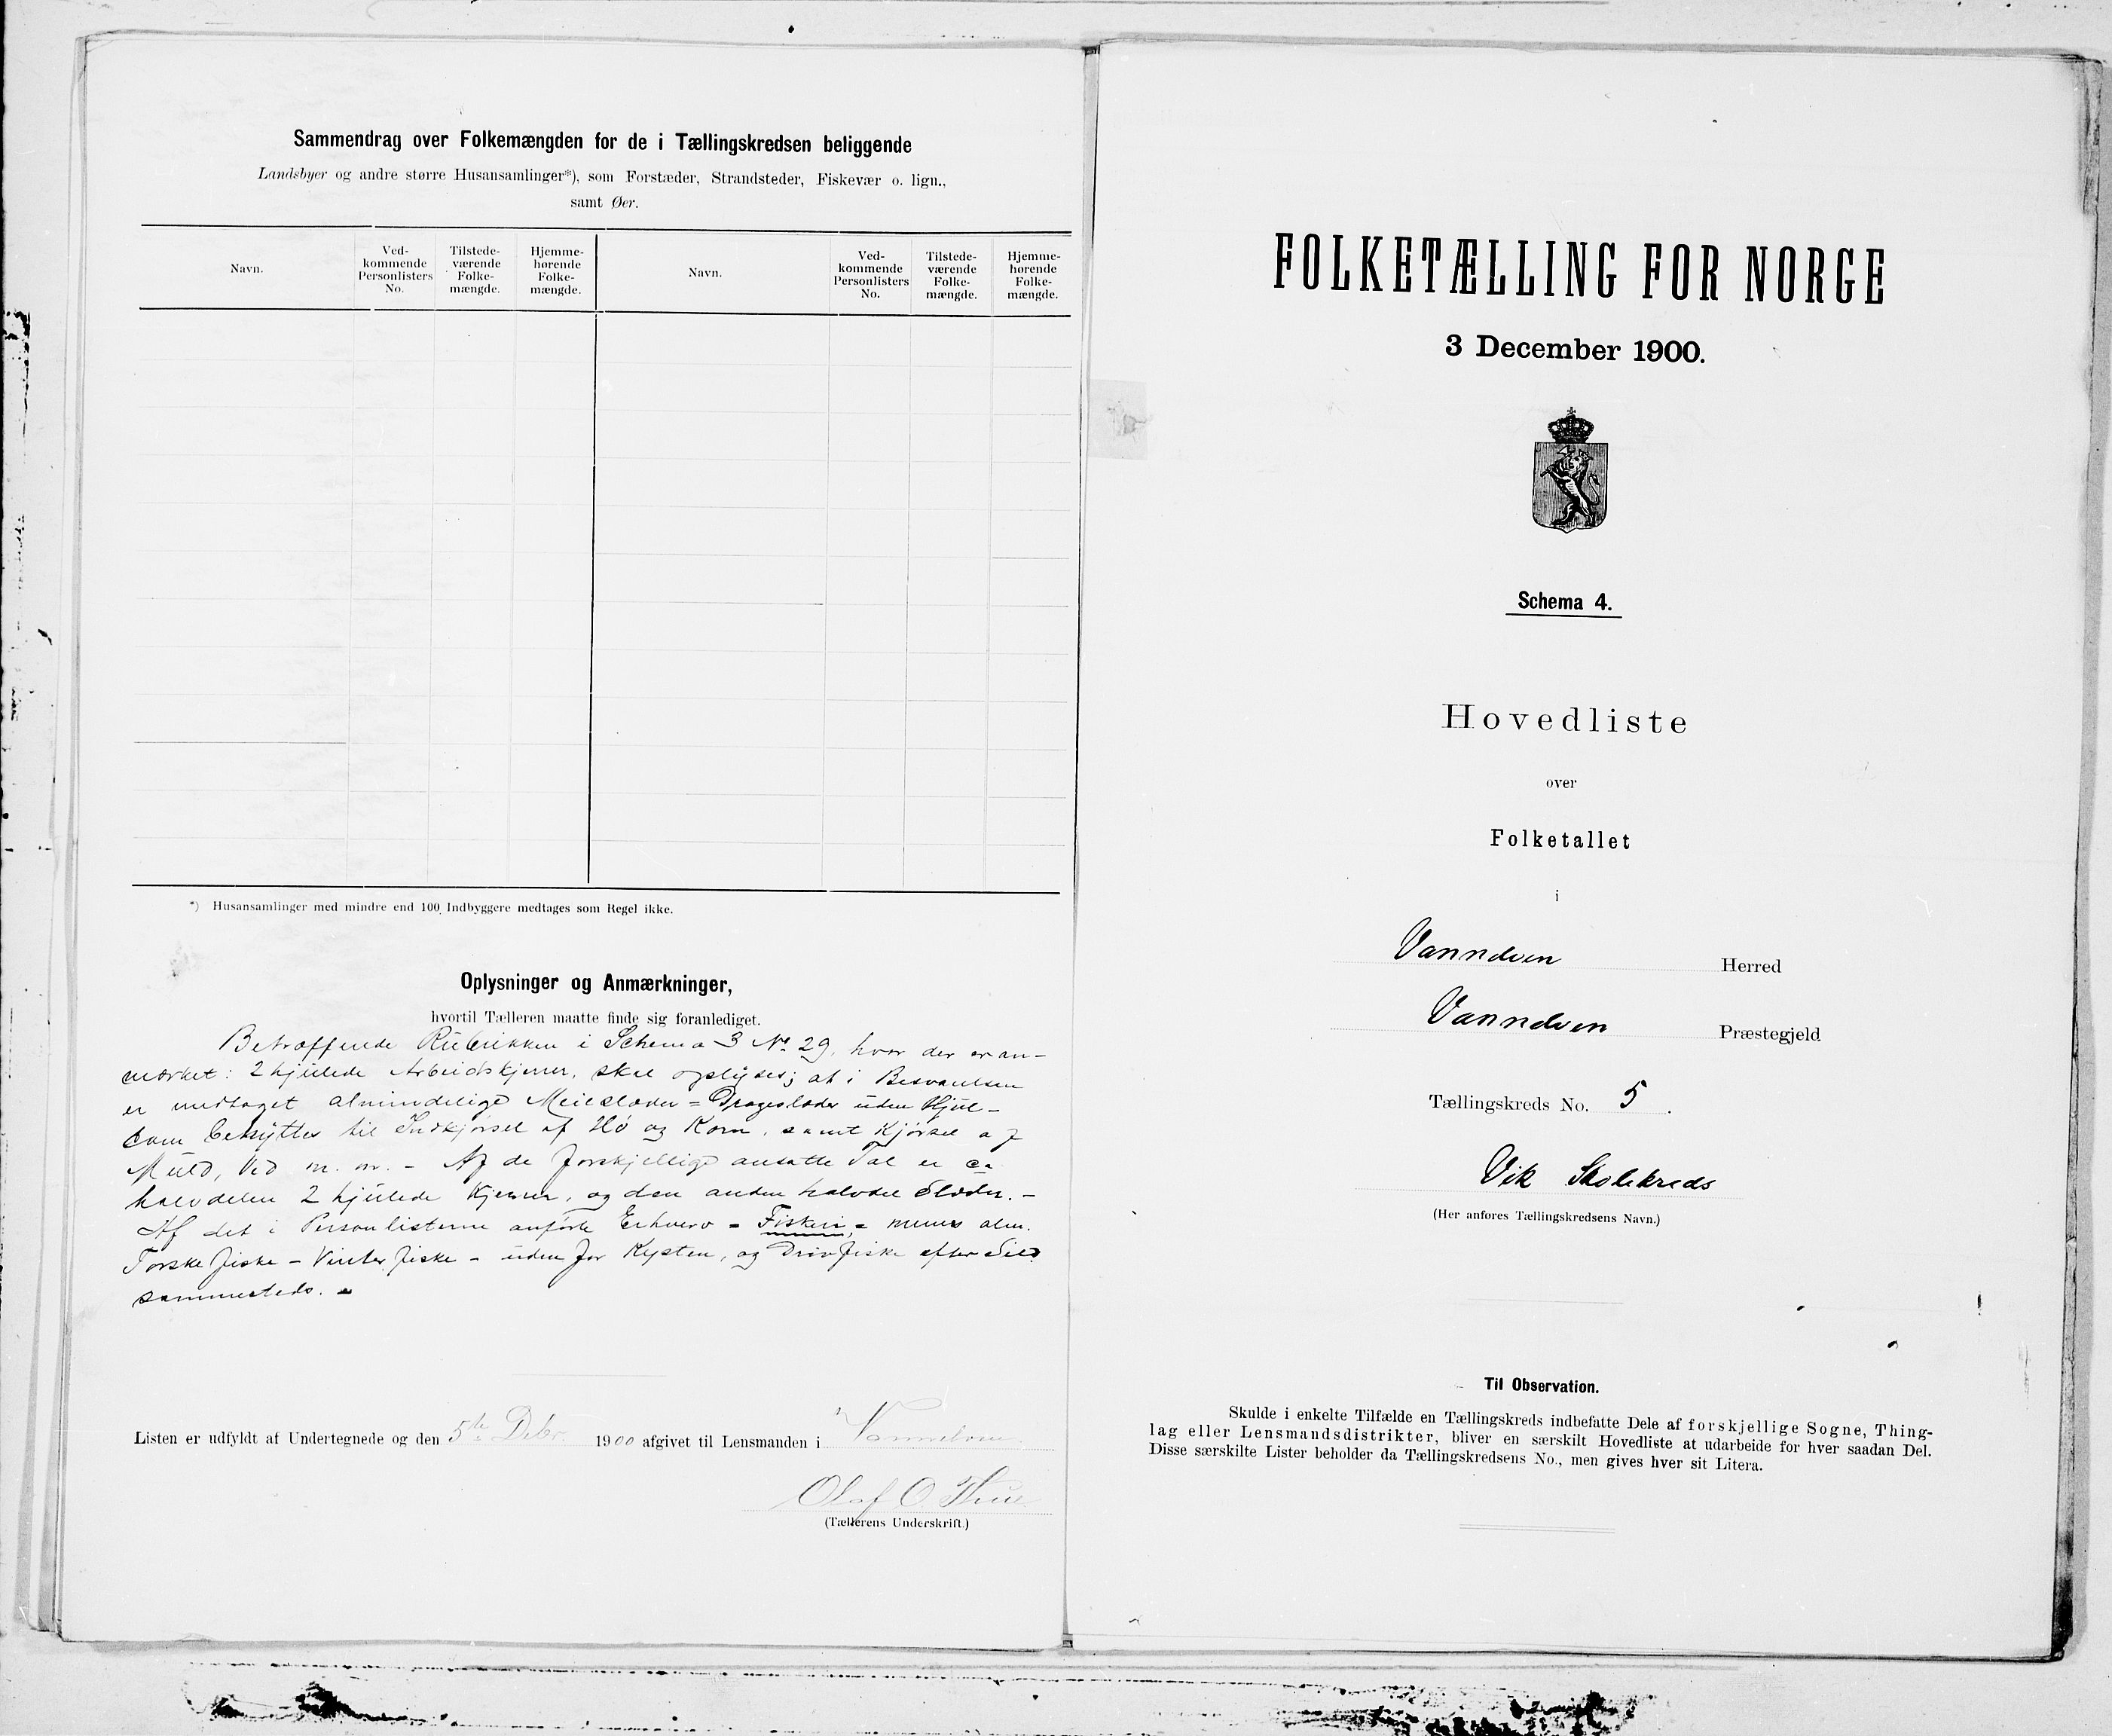 Sammendrag over Folkemængden for de i Tællingskredsen beliggende
Landsbyer og andre større Husansamlinger*), som Forstæder, Strandsteder, Fiskevær o. lign.,
samt Øer.
Navn.
Ved-
kommende
Personlisters
No.
Tilstede-
værende
Folke-
mængde.
Hjemme-
hørende
Folke-
mængde.
Navn.
Ved-
kommende
Personlisters
No.
Tilstede-
værende
Folke-
mængde.
Hjemme-
hørende
Folke-
mængde.
*) Husansamlinger med mindre end 100 Indbyggere medtages som Regel ikke.
Oplysninger og Anmærkninger,
hvortil Tælleren maatte finde sig foranlediget.
Betræffende Rubrikken i Schema 3 No. 29, hvor der er an-
mærket: 2 hjulede Arbeidskjerrer, skal oplyses; at i Besvarelsen
er medtaget almindelige Meieslæder = Drageslæder uden Hjul -
som benyttes til Indkjørsel af Hø og Korn, samt Kjørsel af
Muld, Ved m. m. - Af de forskjellige ansatte Tal er ca
halvdelen 2 hjulede Kjerrer, og den anden halvdel Slæder. -
Af det i Personlisterne anførte Erhverv = Fiskeri = menes alm.
Torskefiske - Vinterfiske - uden for Kysten, og Drivfiske efter Sild
sammesteds. -
Listen er udfyldt af Undertegnede og den 5te Debr. 1900 afgivet til Lensmanden i Vannelven
Olaf O.
(Tællerens Underskrift.)
FOLKETÆLLING FOR NORGE
3 December 1900.
Schema 4.
Hovedliste
over
Folketallet
i
Vannelven Herred
Vannelven Præstegjeld
Tællingskreds No. 5.
Vik Skolekreds
(Her anføres Tællingskredsens Navn.)
Til Observation.
Skulde i enkelte Tilfælde en Tællingskreds indbefatte Dele af forskjellige Sogne, Thing-
lag eller Lensmandsdistrikter, bliver en særskilt Hovedliste at udarbeide for hver saadan Del.
Disse særskilte Lister beholder da Tællingskredsens No., men gives hver sit Litera.